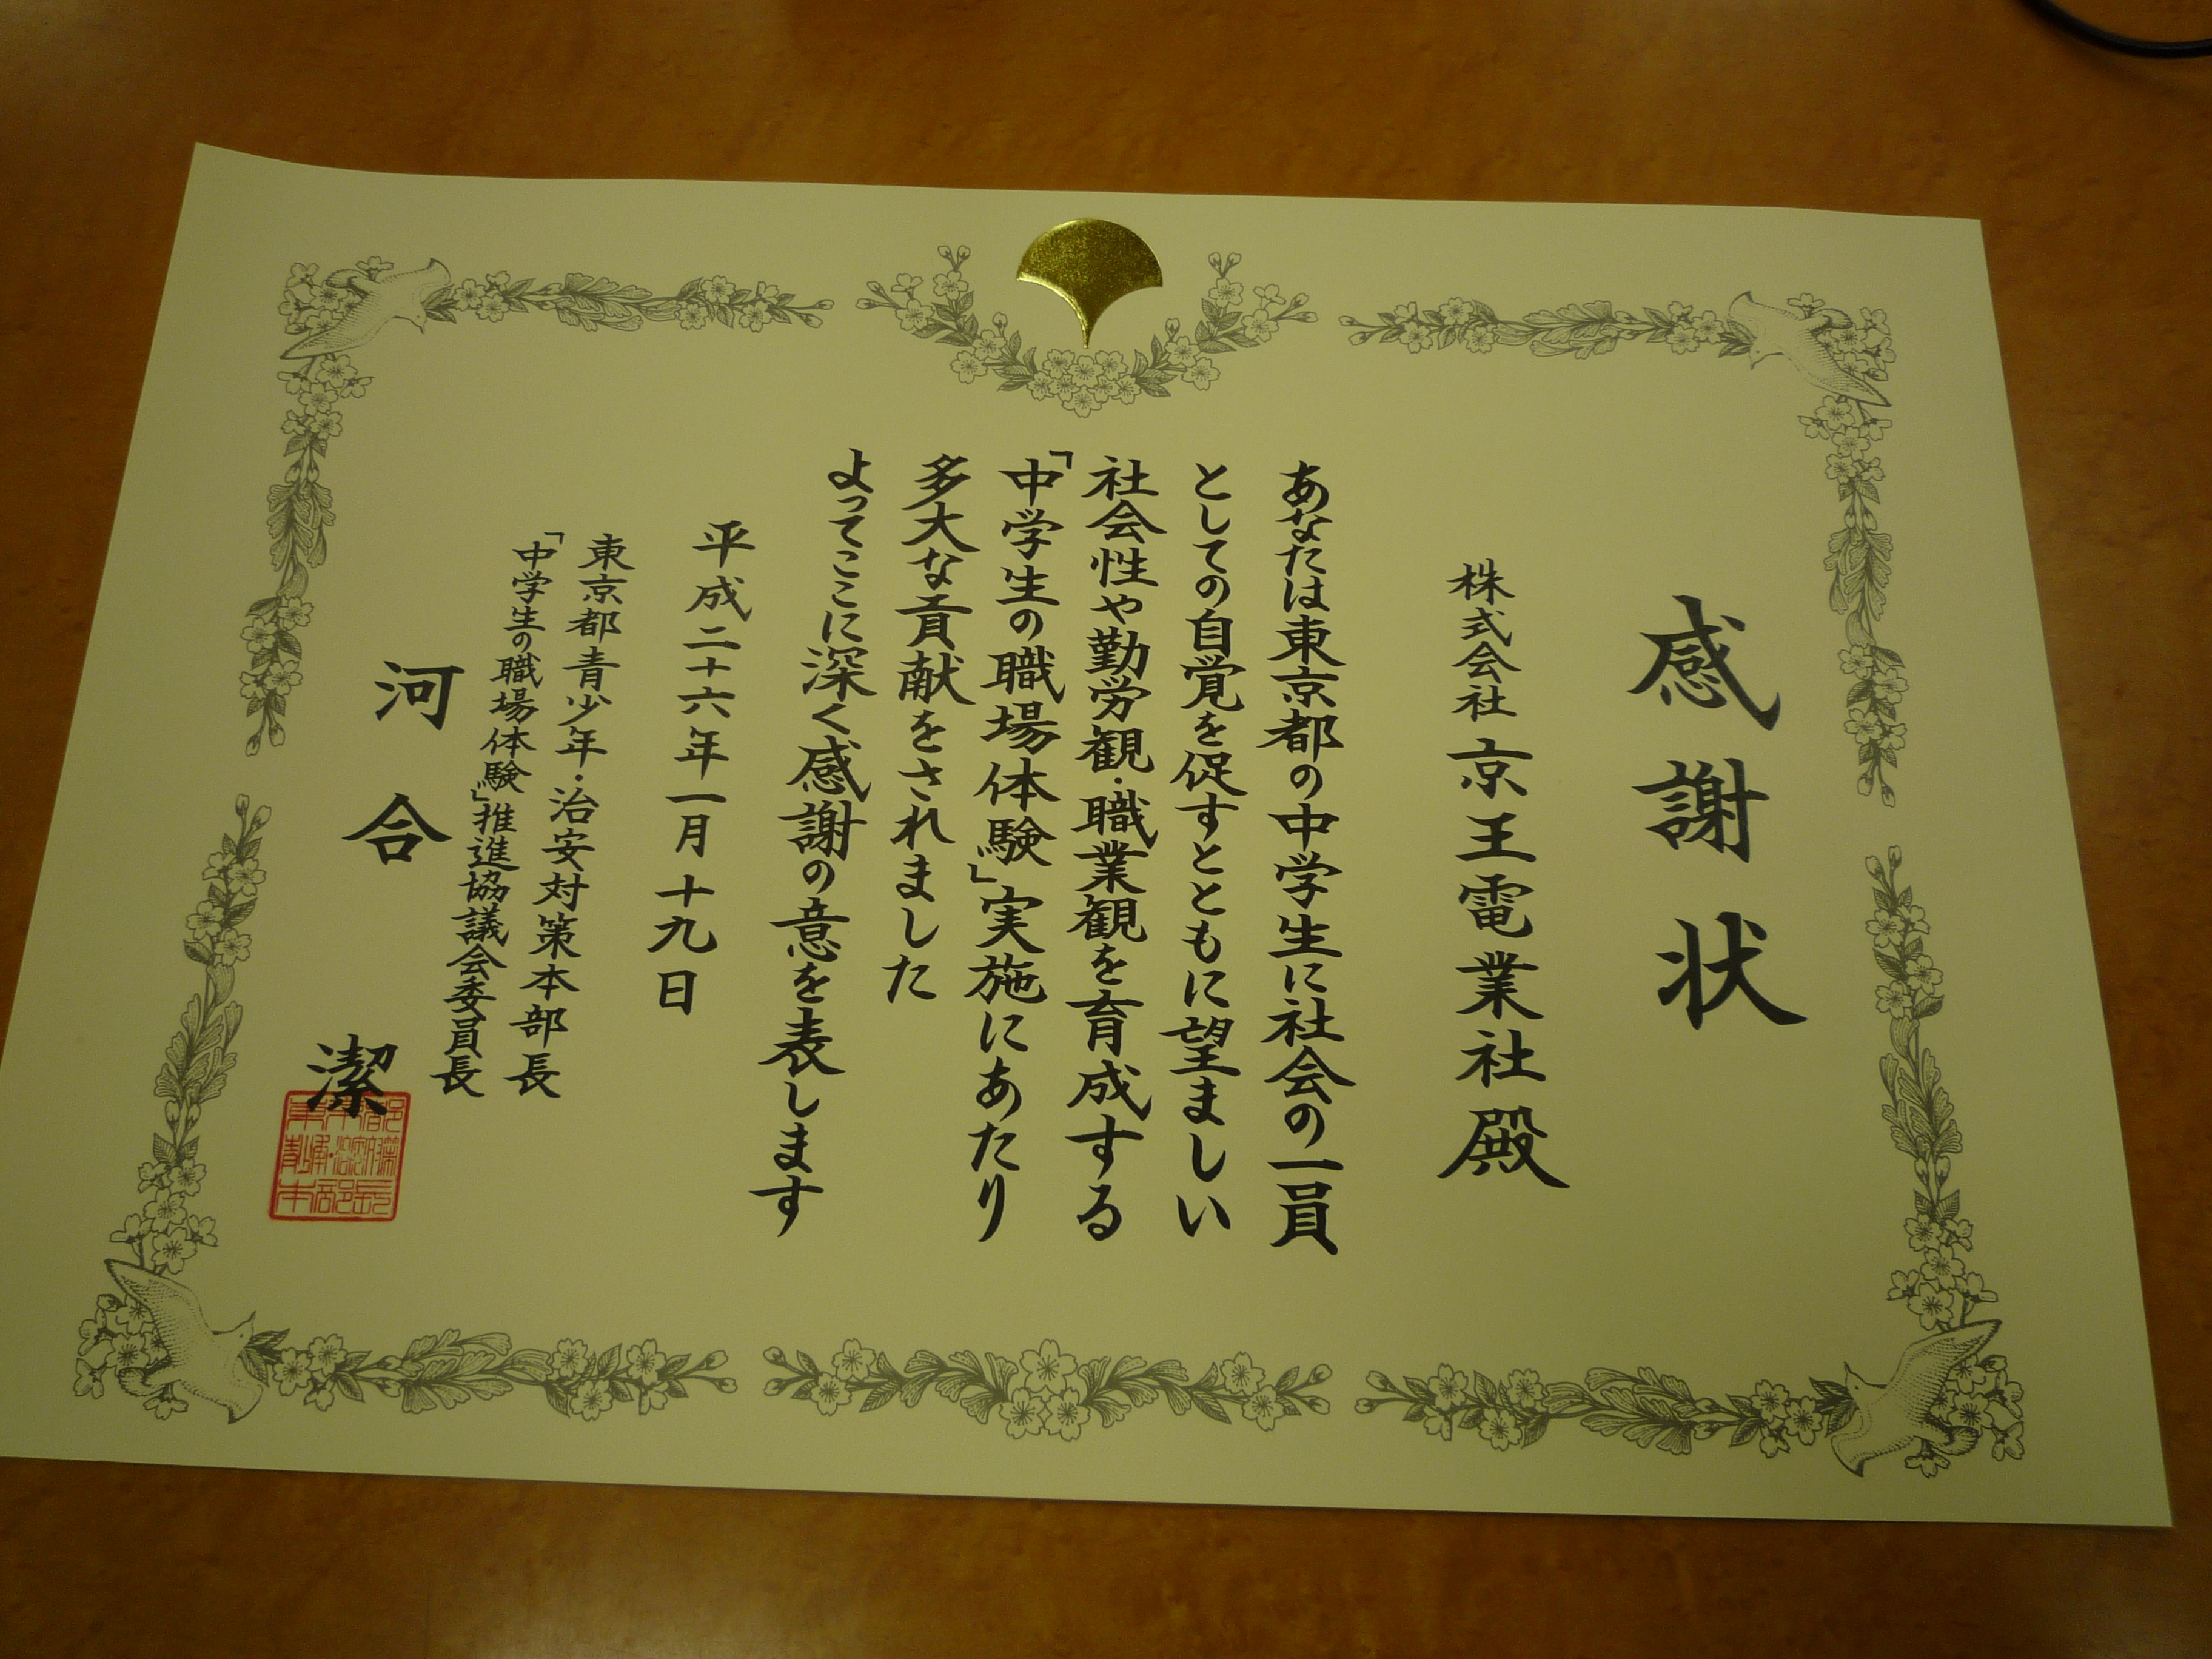 感謝状
株式会社 京王電業社 殿
あなたは東京都の中学生に社会の一員
としての自覚を促すとともに望ましい
社会性や勤労観・職業観を育成する
「中学生の職場体験」実施にあたり
多大な貢献をされました
よってここに深く感謝の意を表します
平成二十六年一月十九日
東京都青少年・治安対策本部長
「中学生の職場体験」推進協議会委員長
河合 潔